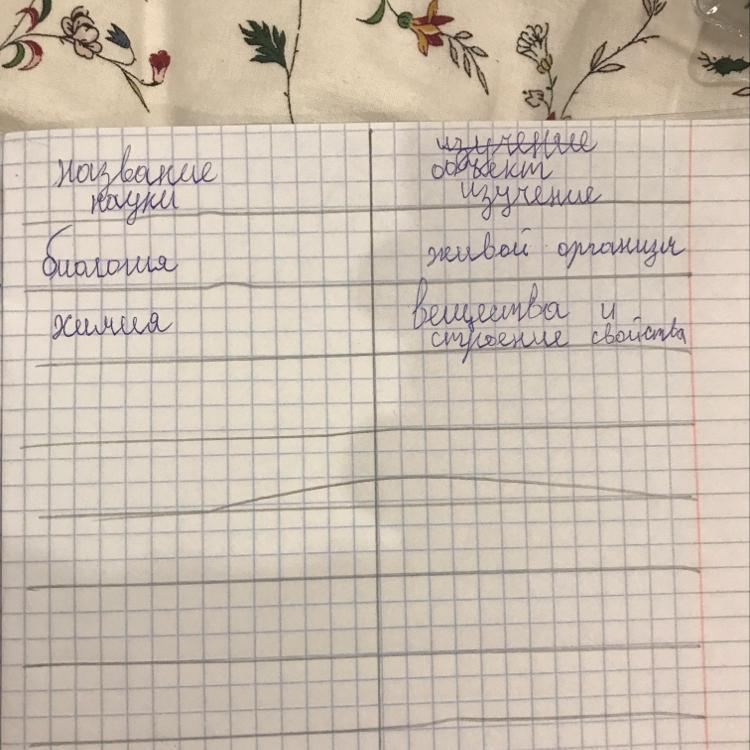 название
науки
изучение
объект
изучение
биология
живой организм
химия
вещества и
строение свойства